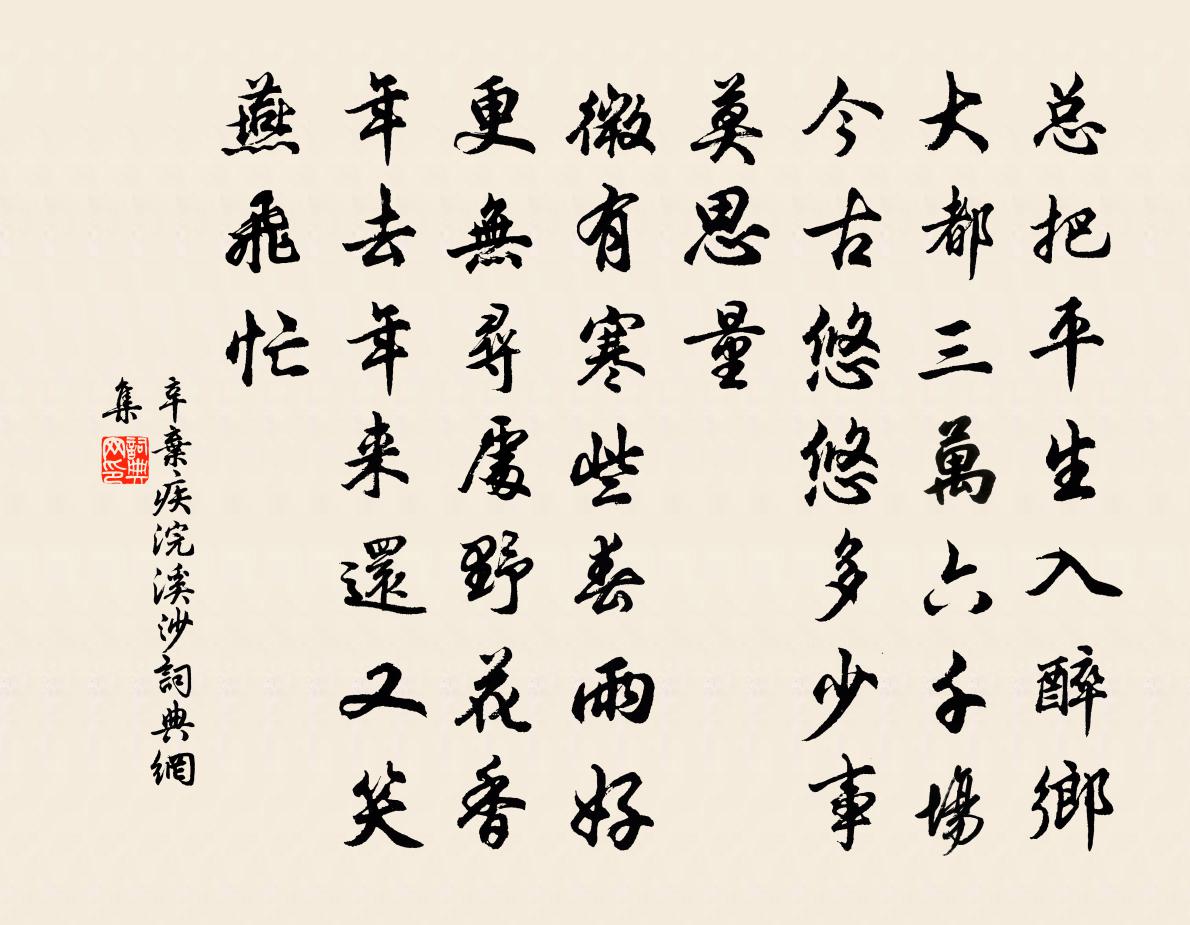 总把平生入醉鄉
大都三萬六千場
今古悠悠多少事
莫思量
微有寒些春雨好
更無尋處野花香
年去年来還又笑
燕飛忙
辛棄疾浣溪沙詞典網
集
詞典网印